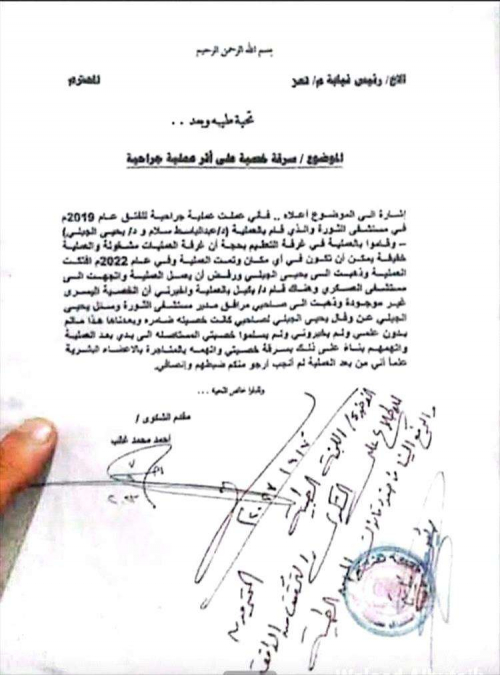 بسم الله الرحمن الرحيم
الاخ/ رئيس نيابة م/ تعز المحترم
تحية طيبه وبعد . .
الموضوع / سرقة خصية على أثر عملية جراحية
إشارة الى الموضوع أعلاه .. فأني عملت عملية جراحية للفتق عام 2019م
في مستشفى الثورة والذي قام بالعملية (د/عبدالباسط سلام و د/ يحيى الجبلي)
– وقاموا بالعملية في غرفة التعقيم بحجة أن غرفة العمليات مشغولة والعملية
خفيفة يمكن أن تكون في أي مكان وتمت العملية وفي عام 2022م افتكت
العملية وذهبت الى يحيى الجبلي ورفض أن يعمل العملية واتجهت الى
مستشفى العسكري وهناك قام د/ بالعملية واخبرني أن الخصية اليسرى
غير موجودة وذهبت الى صاحبي مرافق مدير مستشفى الثورة وسئل يحيى
الجبلي عن وقال يحيى الجبلي لصاحبي كانت خصيته ضامره وبعدناها هذا مالم
بدون علمي ولم يخبروني ولم يسلموا خصيتي المستاصله الى يدي بعد العملية
واتهمهم بناءً على ذلك بسرقة خصيتي واتهمه بالمتاجرة بالاعضاء البشرية
علماً أني من بعد العملية لم أنجب أرجو منكم ضبطهم وإنصافي.
وتقبلوا خالص التحيه ...
مقدم الشكوى /
أحمد محمد غالب
الاخوة/ اللجنة الطبية
للاطلاع على الشكوى